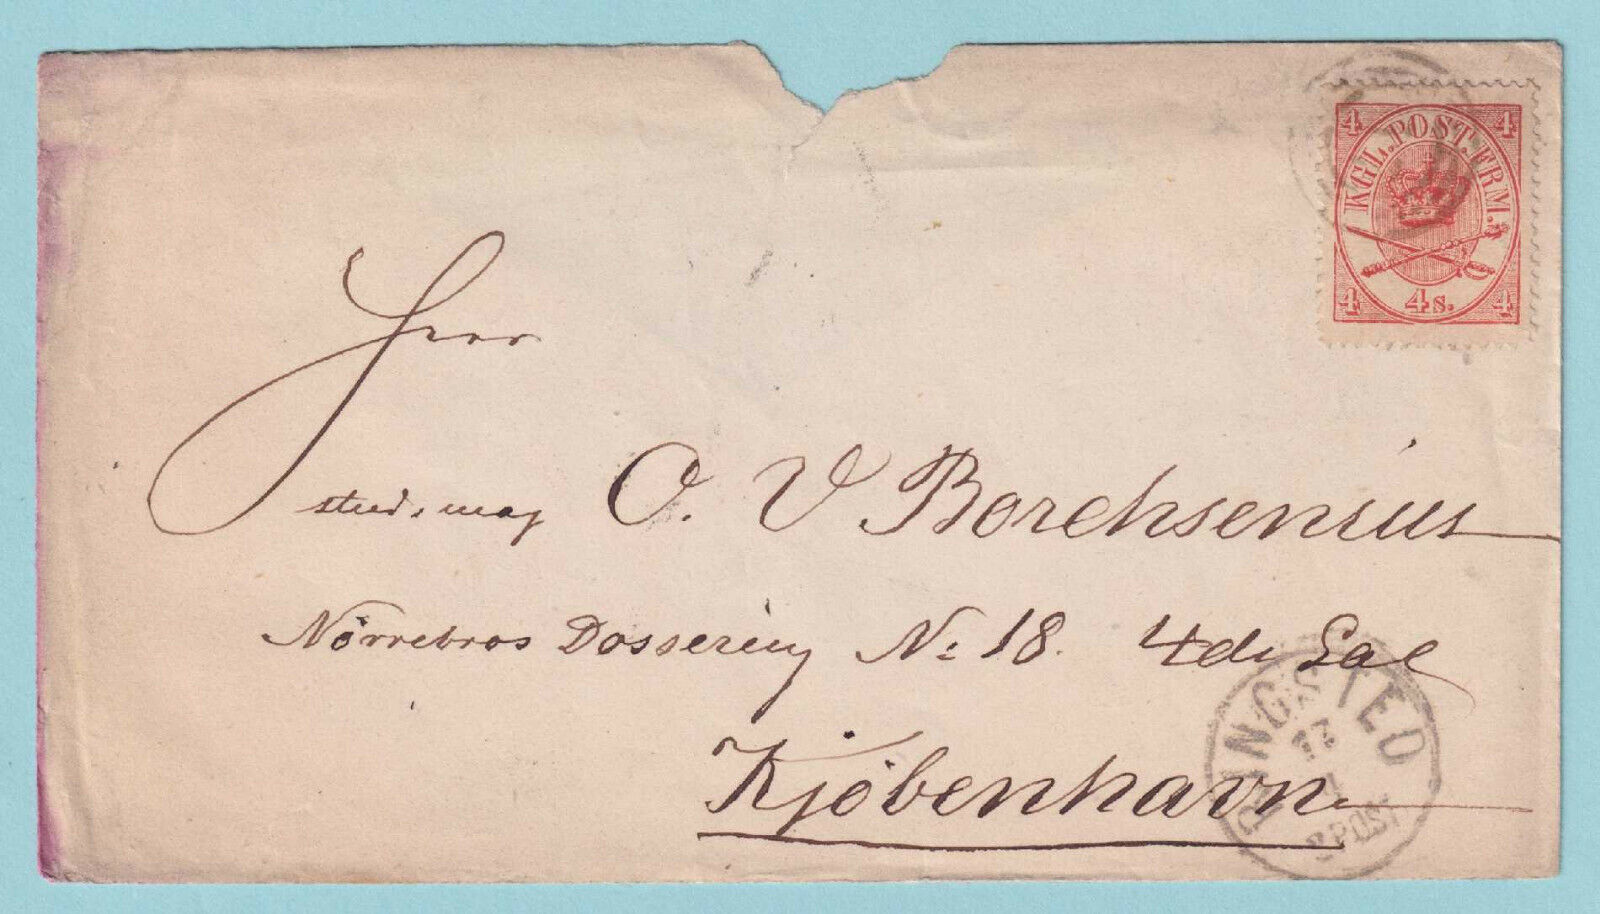 4 4
KGL. POST. FRM.
4 4s. 4
Herr
stud. mag O. V Borchsenius
Nørrebros Dossering No 18. 4de Sal
Kjöbenhavn
RINGSTED
POST